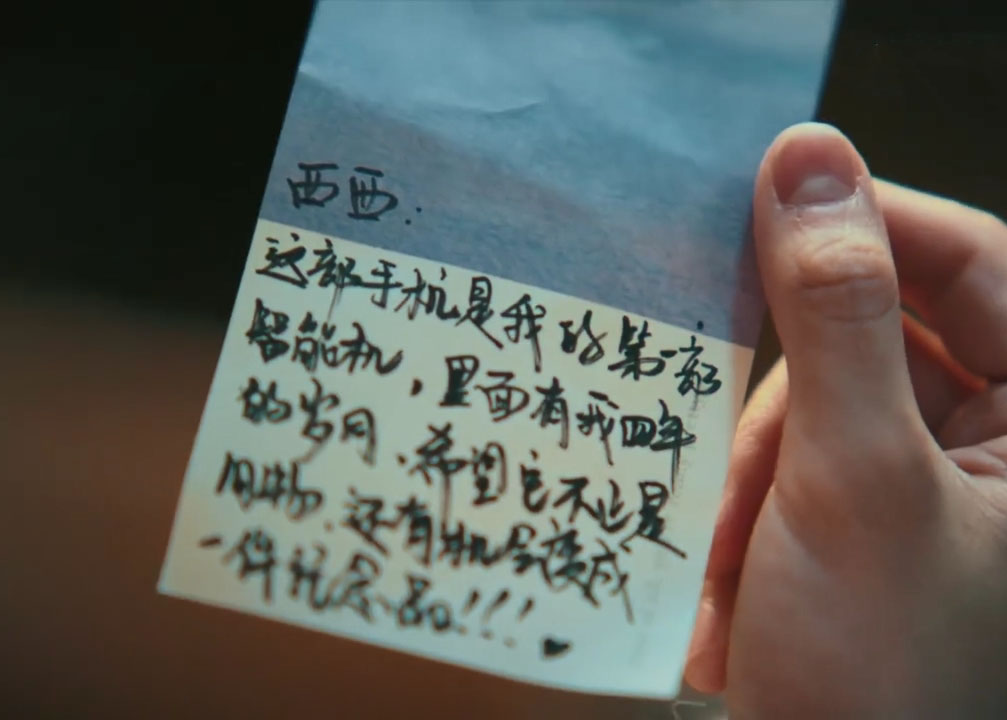 西西:
这部手机是我的第一部
智能机,里面有我四年
的岁月,希望它不止是
旧物,还有机会变成
一件纪念品!!!♥